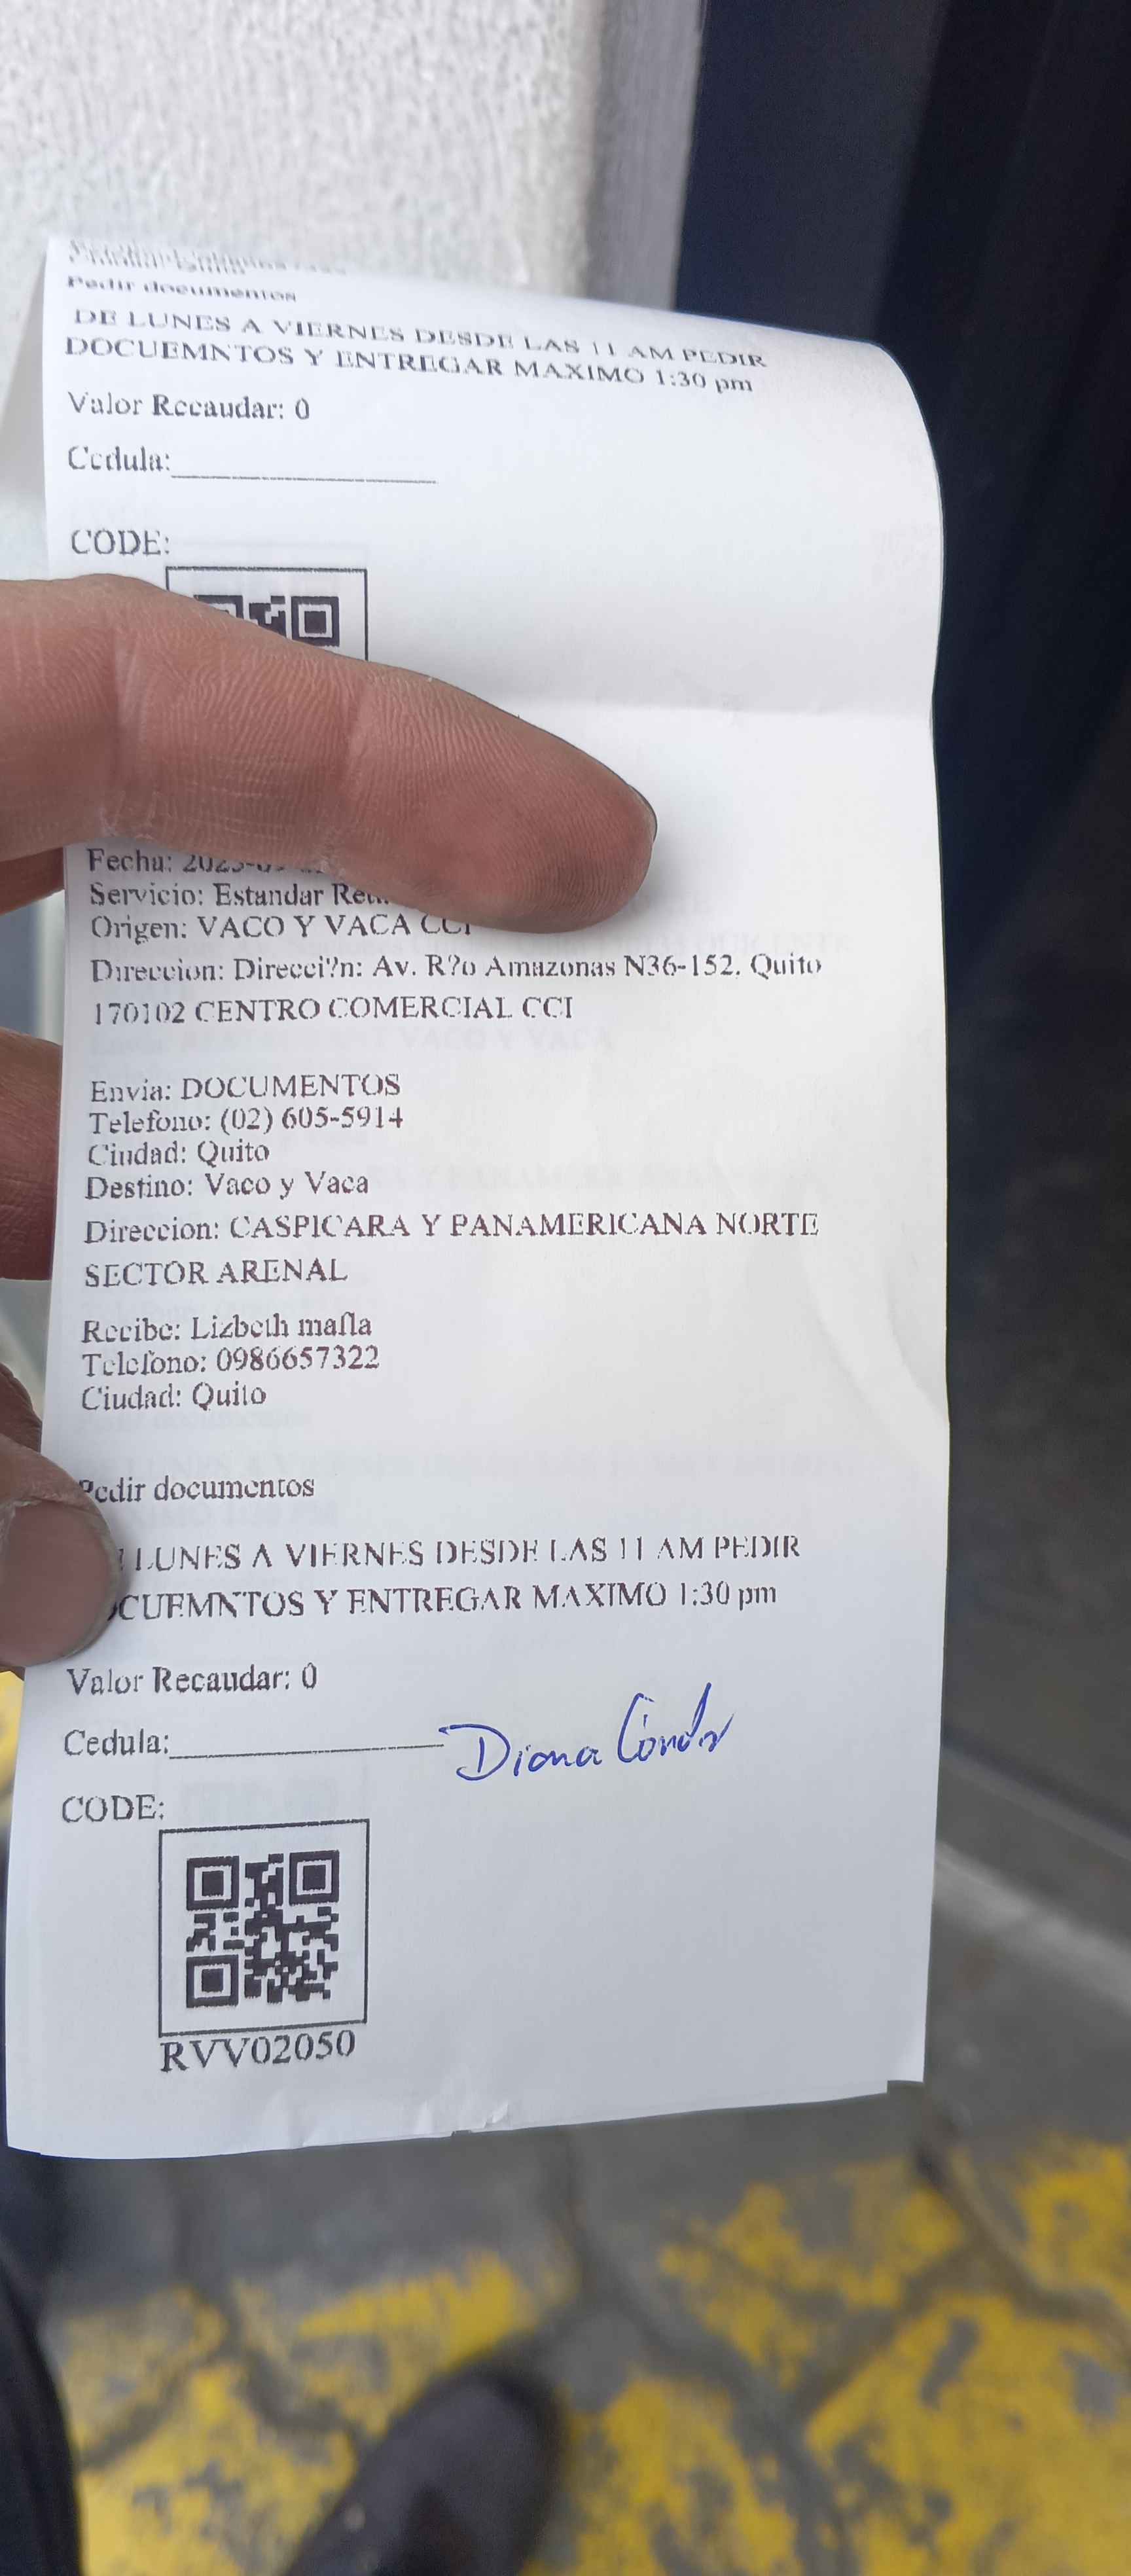 Pedir documentos
DE LUNES A VIERNES DESDE LAS 11 AM PEDIR
DOCUEMNTOS Y ENTREGAR MAXIMO 1:30 pm
Valor Recaudar: 0
Cedula:
CODE:
Fecha:
Servicio: Estandar
Origen: VACO Y VACA CCI
Direccion: Direcci?n: Av. R?o Amazonas N36-152, Quito
170102 CENTRO COMERCIAL CCI
Envia: DOCUMENTOS
Telefono: (02) 605-5914
Ciudad: Quito
Destino: Vaco y Vaca
Direccion: CASPICARA Y PANAMERICANA NORTE
SECTOR ARENAL
Recibe: Lizbeth mafla
Telefono: 0986657322
Ciudad: Quito
Pedir documentos
LUNES A VIERNES DESDE LAS 11 AM PEDIR
CUEMNTOS Y ENTREGAR MAXIMO 1:30 pm
Valor Recaudar: 0
Cedula: Diana
CODE:
RVV02050